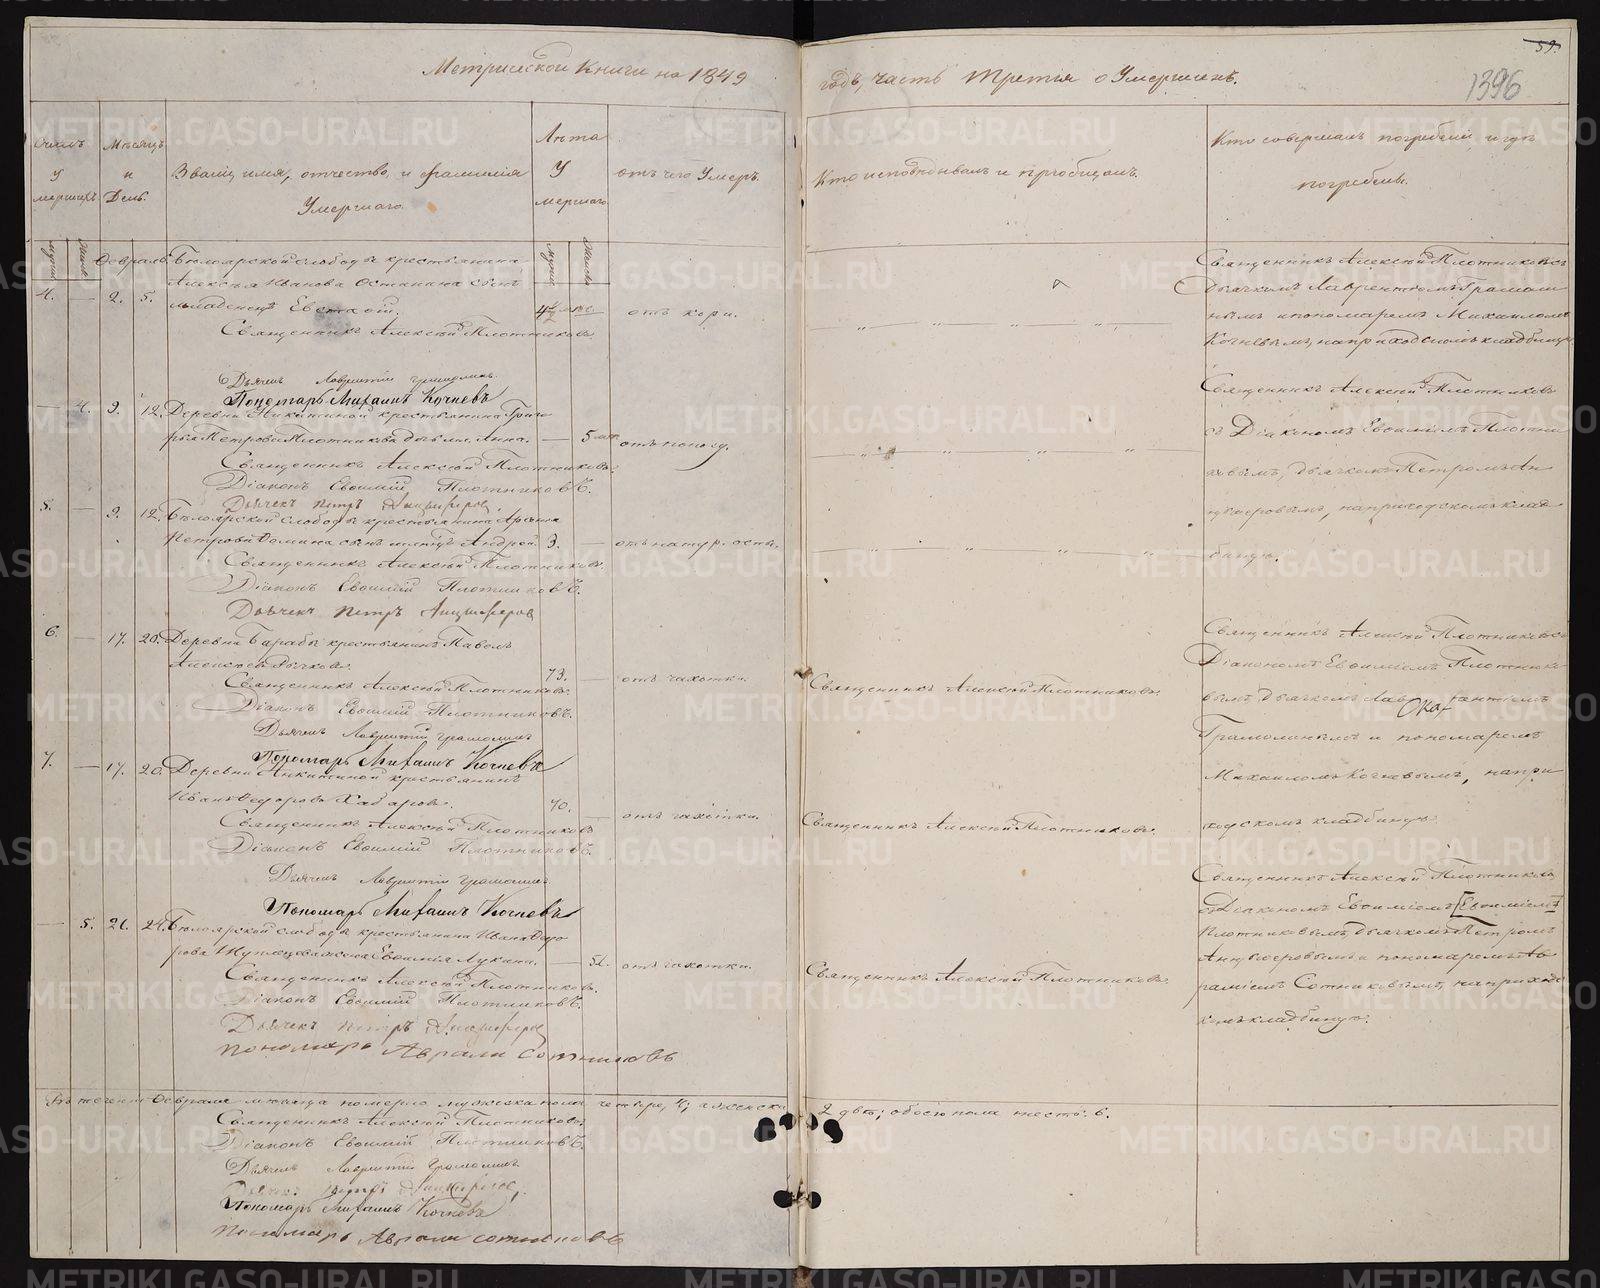 Метрической Книги на 1849
годъ, часть третья о Умершихъ.
59.
1396
Счетъ умершихъ
Мѣсяцъ и День.
Званіе, имя, отчество, и фамилія Умершаго.
Лѣта Умершаго
отъ чего Умеръ.
Кто исповѣдывалъ и пріобщалъ.
Кто совершалъ погребеніе и гдѣ погребены.
Февраль
4. — 2. 5.
Бѣлоярской слободы крестьянина
Алексѣя Иванова сынъ
младенецъ Евстафій.
отъ кори.
Священникъ Алексѣй Плотниковъ
Дьячекъ Лаврентій Грамолинъ
Пономарь Михаилъ Кочневъ
Священникъ Алексѣй Плотниковъ съ
Дьячкомъ Лаврентіемъ Грамолинымъ и пономаремъ Михаиломъ
Кочневымъ, на приходскомъ кладбищѣ.
— 4. 9. 12.
Деревни крестьянина Григорья Петрова Плотникова дочь Анна.
— 5
отъ поносу.
Священникъ Алексѣй Плотниковъ.
Діаконъ Евѳимій Плотниковъ.
Дьячекъ Петръ Анцыферов
Священникъ Алексѣй Плотниковъ
съ Діакономъ Евѳиміемъ Плотниковымъ, дьячкомъ Петромъ Анцыферовымъ, на приходскомъ кладбищѣ.
5. — 9. 12.
Бѣлоярской слободы крестьянина
Петрова сынъ Андрей.
3. —
отъ натур. оспы.
Священникъ Алексѣй Плотниковъ.
Діаконъ Евѳимій Плотниковъ.
Дьячекъ Петръ Анцыферов
6. — 17. 20.
Деревни крестьянинъ Павелъ
Алексѣевъ
73. —
отъ чахотки.
Священникъ Алексѣй Плотниковъ.
Діаконъ Евѳимій Плотниковъ.
Дьячекъ Лаврентій Грамолинъ
Пономарь Михаилъ Кочневъ
Священникъ Алексѣй Плотниковъ.
Священникъ Алексѣй Плотниковъ съ
Діакономъ Евѳиміемъ Плотниковымъ, Дьячкомъ
Грамолинымъ и пономаремъ
Михаиломъ Кочневымъ, на приходскомъ кладбищѣ.
7. — 17. 20.
Деревни крестьянинъ
Иванъ Федоровъ Хабаровъ.
70. —
отъ чахотки.
Священникъ Алексѣй Плотниковъ
Діаконъ Евѳимій Плотниковъ.
Дьячекъ Лаврентій Грамолинъ
Пономарь Михаилъ Кочневъ
Священникъ Алексѣй Плотниковъ.
— 5. 21. 24.
Бѣлоярской слободы крестьянина Ивана Федорова жена Евѳимія Лукина.
—
отъ чахотки.
Священникъ Алексѣй Плотниковъ.
Діаконъ Евѳимій Плотниковъ.
Дьячекъ Петръ Анцыферов
пономарь Аврамъ Сотниковъ
Священникъ Алексѣй Плотниковъ.
Священникъ Алексѣй Плотниковъ
съ Діакономъ Евѳиміемъ [Евѳиміемъ]
Плотниковымъ, дьячкомъ Петромъ
Анцыферовымъ и пономаремъ Авраміемъ Сотниковымъ, на приходскомъ кладбищѣ.
Въ теченіи Февраля мѣсяца померло мужеска пола четыре, 4; а женска
2 двѣ; обоего пола шесть. 6.
Священникъ Алексѣй Плотниковъ.
Діаконъ Евѳимій Плотниковъ.
Дьячекъ Лаврентій Грамолинъ.
Дьячекъ Петръ Анцыферов
Пономарь Михаилъ Кочневъ
пономарь Аврамъ Сотниковъ
METRIKI.GASO-URAL.RU